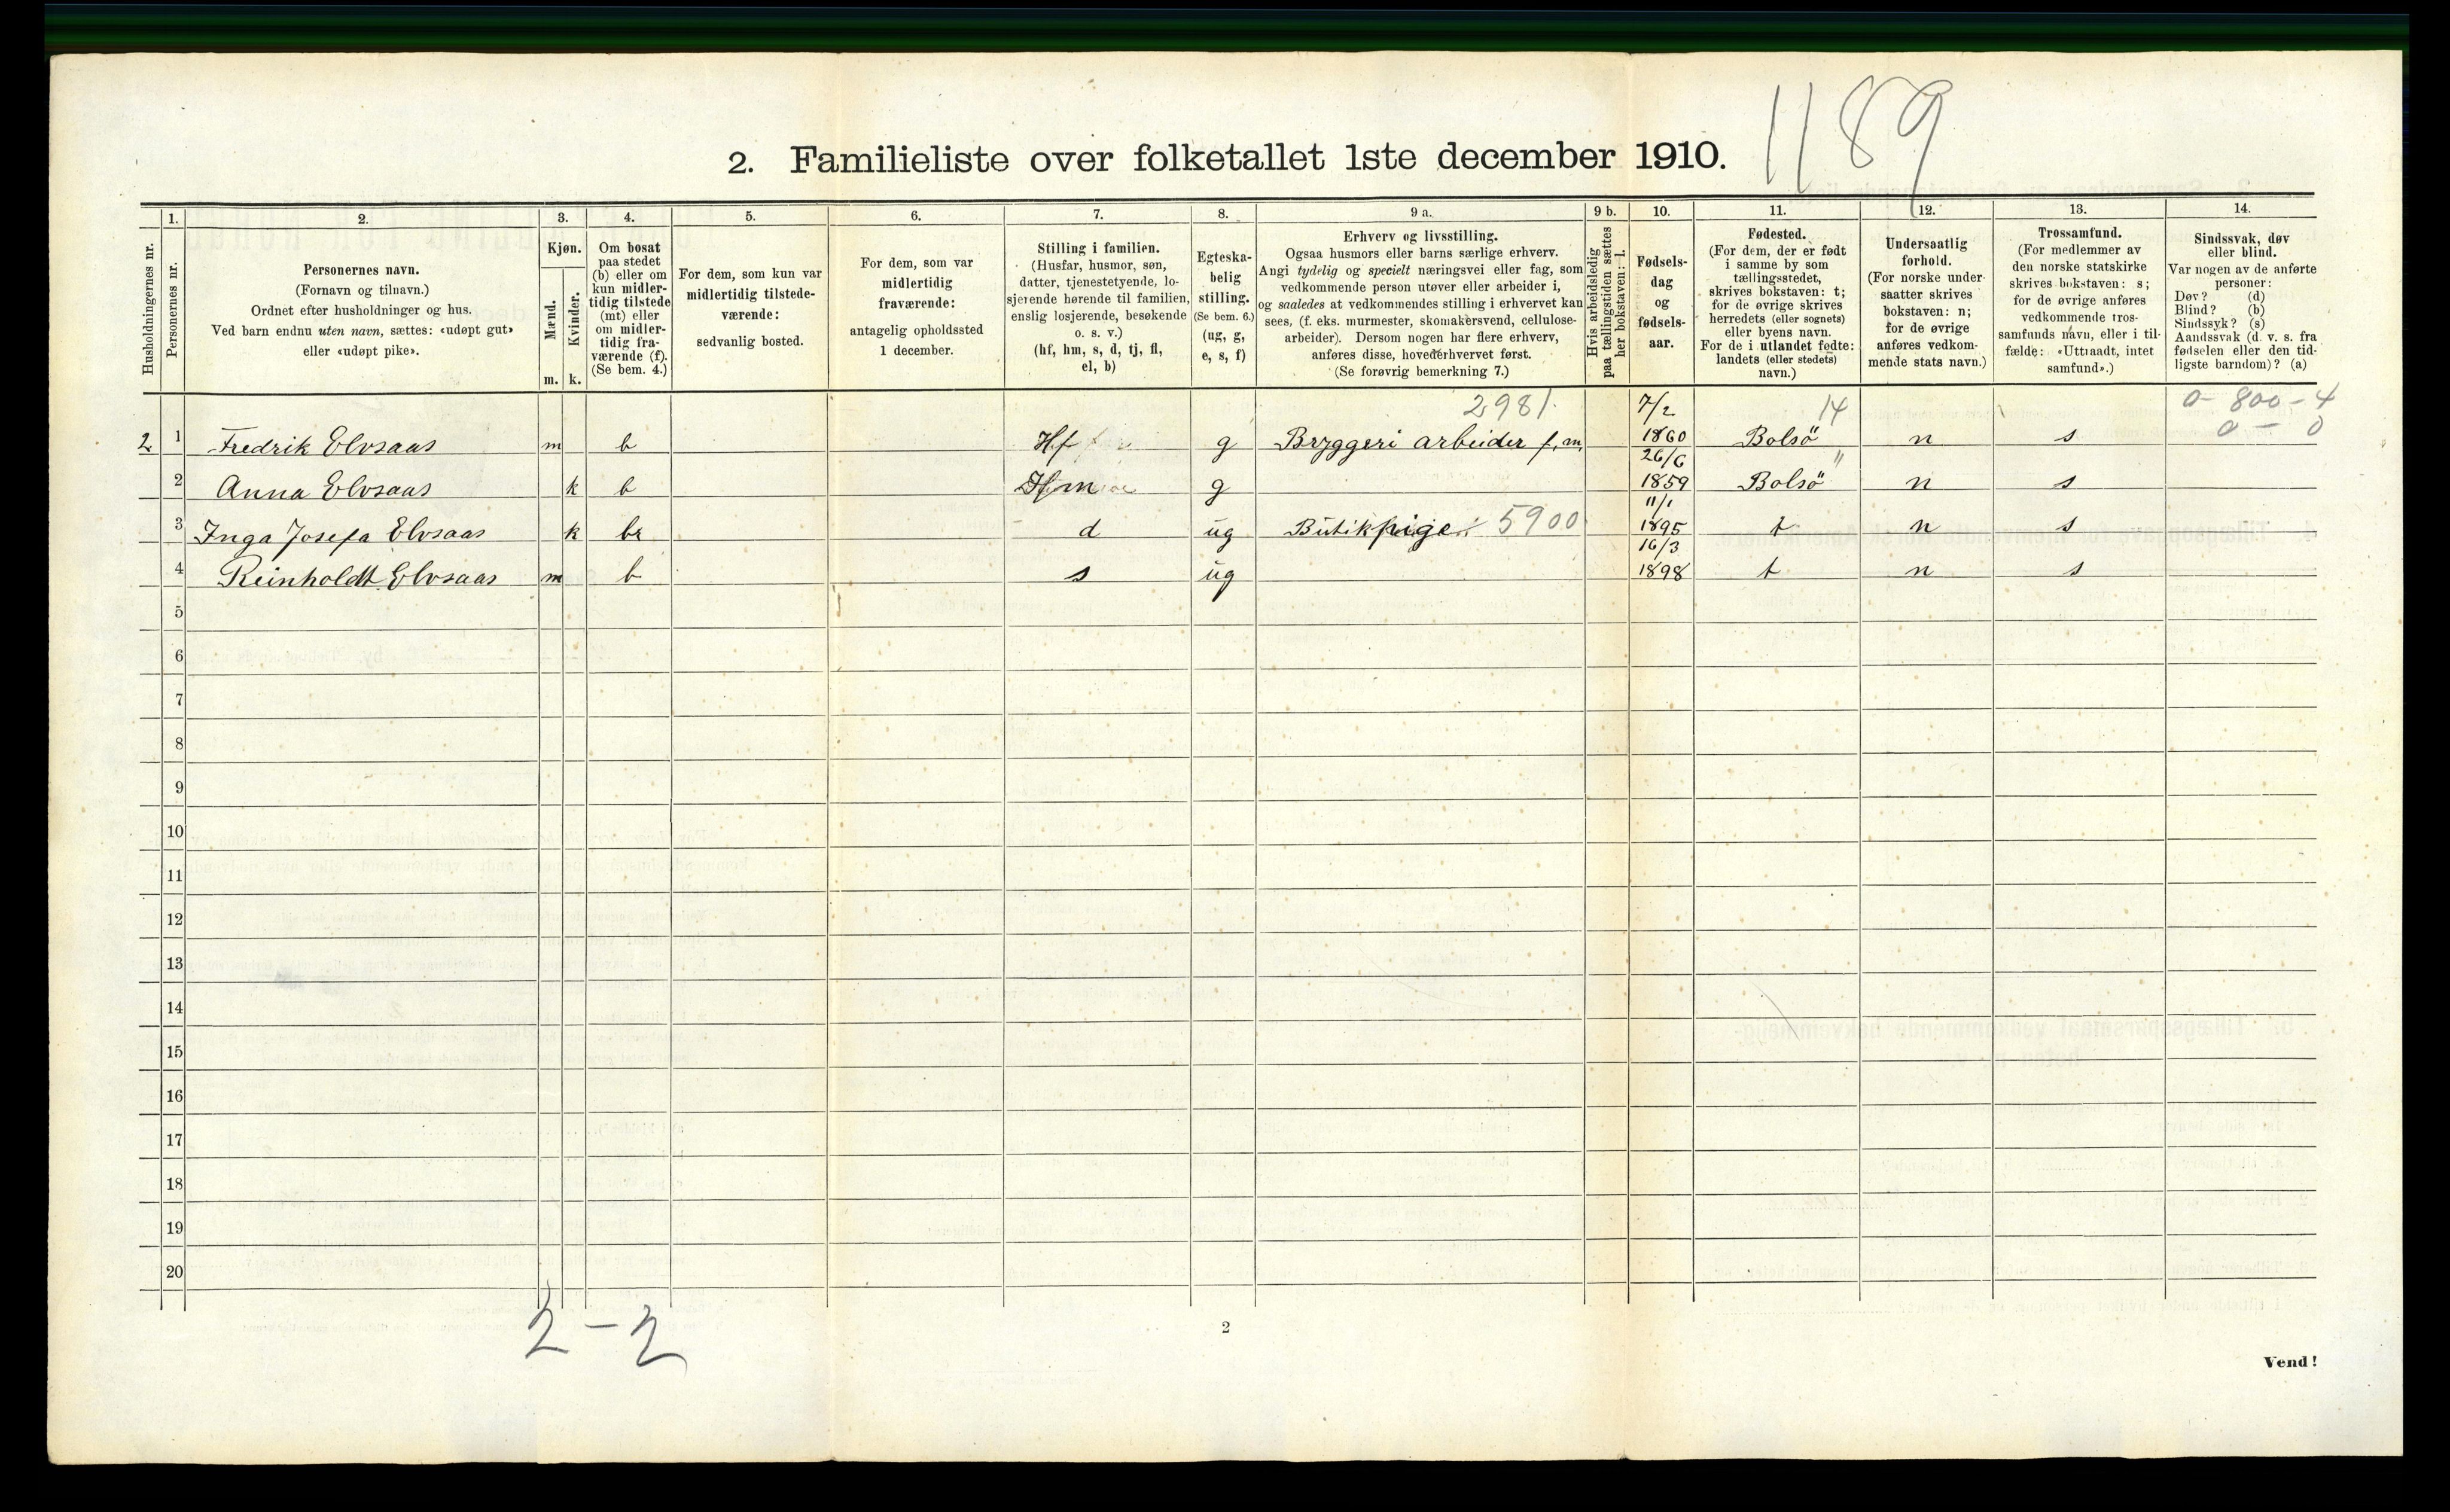 1189
2. Familieliste over folketallet 1ste december 1910.
1. 2. 3. 4. 5. 6. 7. 8. 9 a. 9 b. 10. 11. 12. 13. 14.
Husholdningernes nr.
Personernes nr.
Personernes navn.
(Fornavn og tilnavn.)
Ordnet efter husholdninger og hus.
Ved barn endnu uten navn, sættes: «udøpt gut»
eller «udøpt pike».
Kjøn.
Mænd.
Kvinder.
m. k.
Om bosat
paa stedet
(b) eller om
kun midler-
tidig tilstede
(mt) eller
om midler-
tidig fra-
værende (f).
(Se bem. 4.)
For dem, som kun var
midlertidig tilstede-
værende:
sedvanlig bosted.
For dem, som var
midlertidig
fraværende:
antagelig opholdssted
1 december.
Stilling i familien.
(Husfar, husmor, søn,
datter, tjenestetyende, lo-
sjerende hørende til familien,
enslig losjerende, besøkende
o. s. v.)
(hf, hm, s, d, tj, fl,
el, b)
Egteska-
belig
stilling.
(Se bem. 6.)
(ug, g,
e, s, f)
Erhverv og livsstilling.
Ogsaa husmors eller barns særlige erhverv.
Angi tydelig og specielt næringsvei eller fag, som
vedkommende person utøver eller arbeider i,
og saaledes at vedkommendes stilling i erhvervet kan
sees, (f. eks. murmester, skomakersvend, cellulose-
arbeider). Dersom nogen har flere erhverv,
anføres disse, hovederhvervet først.
(Se forøvrig bemerkning 7.)
Hvis arbeidsledig
paa tællingstiden sættes
her bokstaven: l.
Fødsels-
dag
og
fødsels-
aar.
Fødested.
(For dem, der er født
i samme by som
tællingsstedet,
skrives bokstaven: t;
for de øvrige skrives
herredets (eller sognets)
eller byens navn.
For de i utlandet fødte:
landets (eller stedets)
navn.)
Undersaatlig
forhold.
(For norske under-
saatter skrives
bokstaven: n;
for de øvrige
anføres vedkom-
mende stats navn.)
Trossamfund.
(For medlemmer av
den norske statskirke
skrives bokstaven: s;
for de øvrige anføres
vedkommende tros-
samfunds navn, eller i til-
fælde: «Uttraadt, intet
samfund».)
Sindssvak, døv
eller blind.
Var nogen av de anførte
personer:
Døv? (d)
Blind? (b)
Sindssyk? (s)
Aandssvak (d. v. s. fra
fødselen eller den tid-
ligste barndom)? (a)
2981. 7/2 14 0-800-4
2 1 Fredrik Elvsaas m b Hf g Bryggeri arbeider f.m. 1860 Bolsö n s 0 - 0
26/6 "
2 Anna Elvsaas k b Hm g 1859 Bolsö n s
11/1
3 Inga Josefa Elvsaas k b d ug Butikpige 5900 1895 t n s
16/3
4 Reinholdt Elvsaas m b s ug 1898 t n s
5
6
7
8
9
10
11
12
13
14
15
16
17
18
19
20
2 - 2
2
Vend!